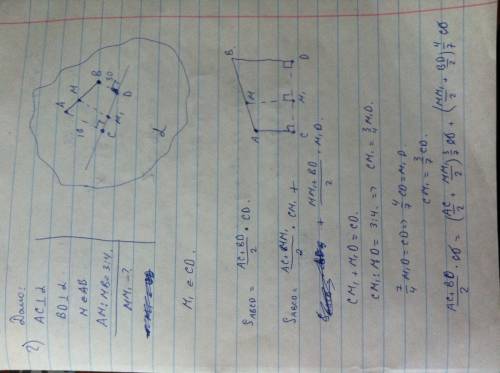 Дано:
2) AC⊥α
BD⊥α
M∈AB
AM:MB=3:4.
MM₁=?
A M B
18 30
C M₁ D
α
M₁ ∈ CD.
B
M
A
C M₁ D
S_ABCD = (AC+BD)/2 · CD.
S_ABCD = (AC+MM₁)/2 · CM₁ +
+ (MM₁+BD)/2 · M₁D.
CM₁ + M₁D = CD.
CM₁:M₁D = 3:4. => CM₁ = 3/4 M₁D.
7/4 M₁D = CD => 4/7 CD = M₁D
CM₁ = 3/7 CD.
(AC+BD)/2 · CD = (AC/2 + MM₁/2) 3/7 CD + (MM₁/2 + BD/2) 4/7 CD